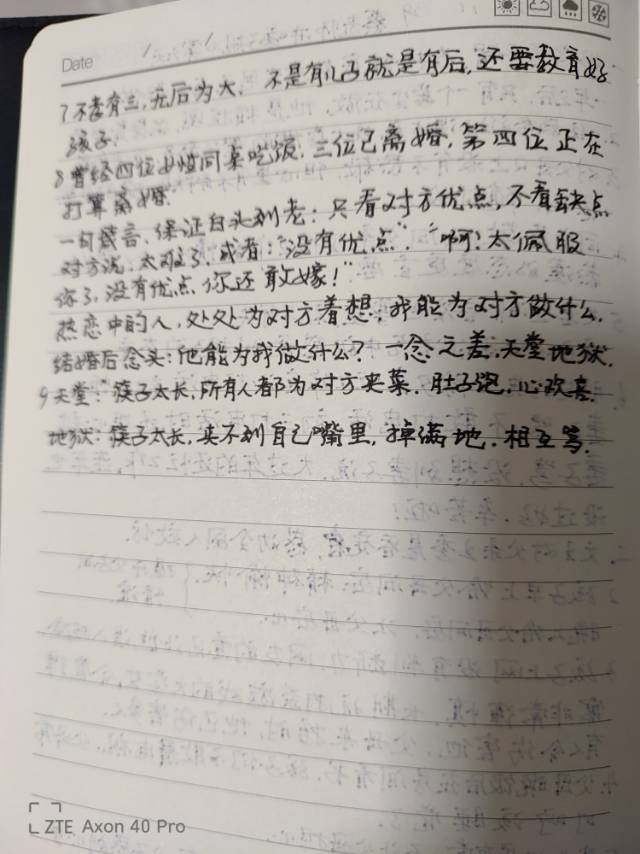 Date
7不孝有三,无后为大. 不是有儿子就是有后,还要教育好
孩子.
8曾经四位女性同桌吃饭. 三位已离婚,第四位正在
打算离婚.
一句箴言、保证白头到老:只看对方优点,不看缺点
对方说. 太难了. 或者:"没有优点". "啊?太佩服
你了,没有优点你还敢嫁!"
热恋中的人,处处为对方着想,我能为对方做什么.
结婚后念头:他能为我做什么? 一念之差,天堂地狱.
9天堂:筷子太长,所有人都为对方夹菜. 肚子饱,心欢喜.
地狱:筷子太长,夹不到自己嘴里,掉满地. 相互骂.
ZTE Axon 40 Pro